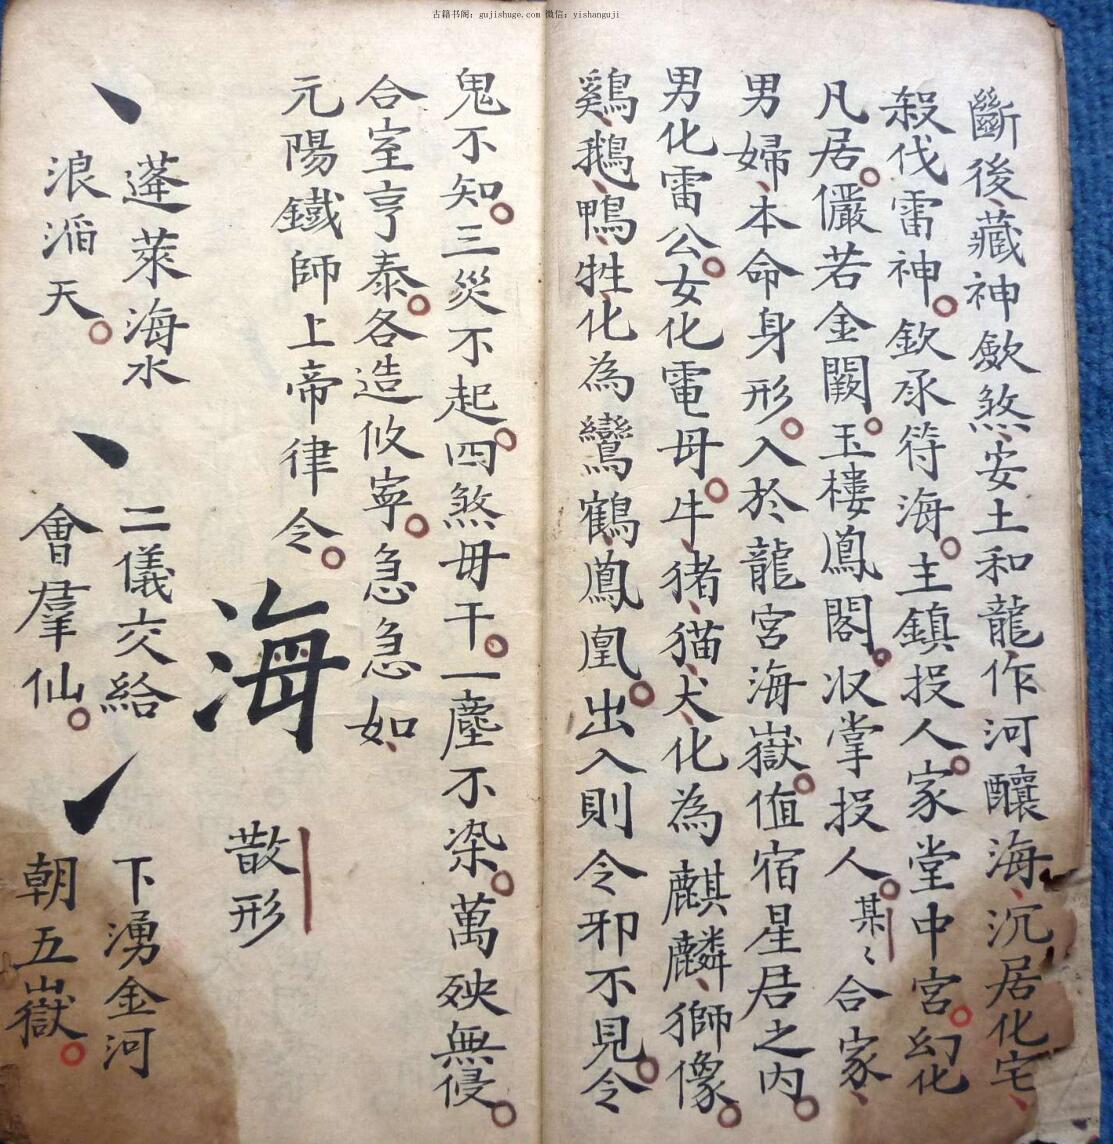 古籍书阁：gujishuge.com 微信：yishanguji
斷後、藏神歛煞、安土和龍、作河釀海、沉居化宅、
殺伐雷神。欽承符海。主鎮投人。家堂中宮。幻化
凡居。儼若金闕。玉樓鳳閣。収掌投人。某〻合家、
男婦、本命身形。入於龍宮海嶽。值宿星君之內。
男化雷公。女化電母。牛、猪、猫、犬、化為麒麟、獅像。
鷄、鵝、鴨、牲、化為鸞鶴、鳳凰。出入則令邪不見。令
鬼不知。三災不起。四煞毋干。一塵不染。萬殃無侵。
合室亨泰。各造攸寧。急急如、
元陽鐵師上帝律令。
海
散形
蓬萊海水
浪滔天。
二儀交給
會羣仙。
下湧金河
朝五嶽。